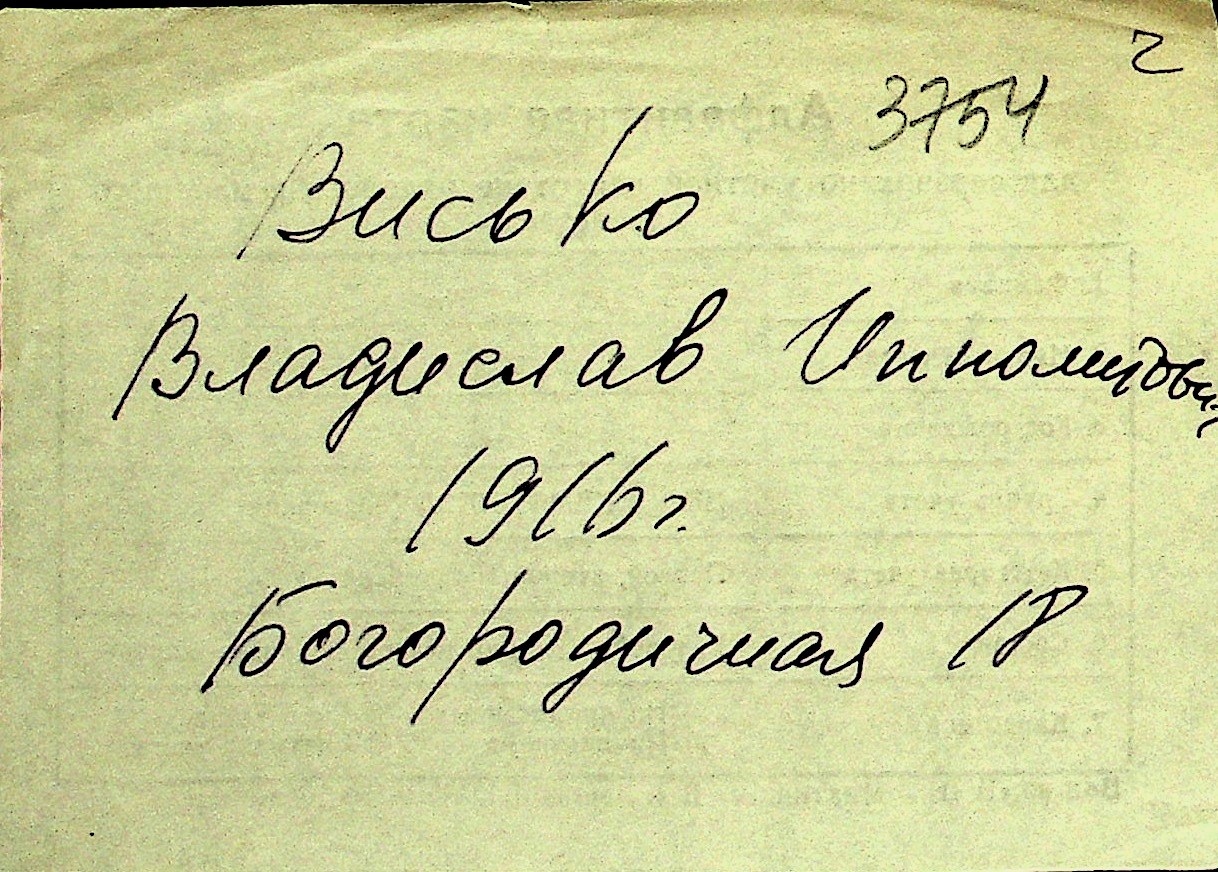 г
3754
Висько
Владислав Ипполитович
1916 г.
Богородичная 18